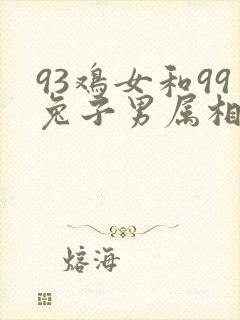 93鸡女和99
兔子男属相
熔海